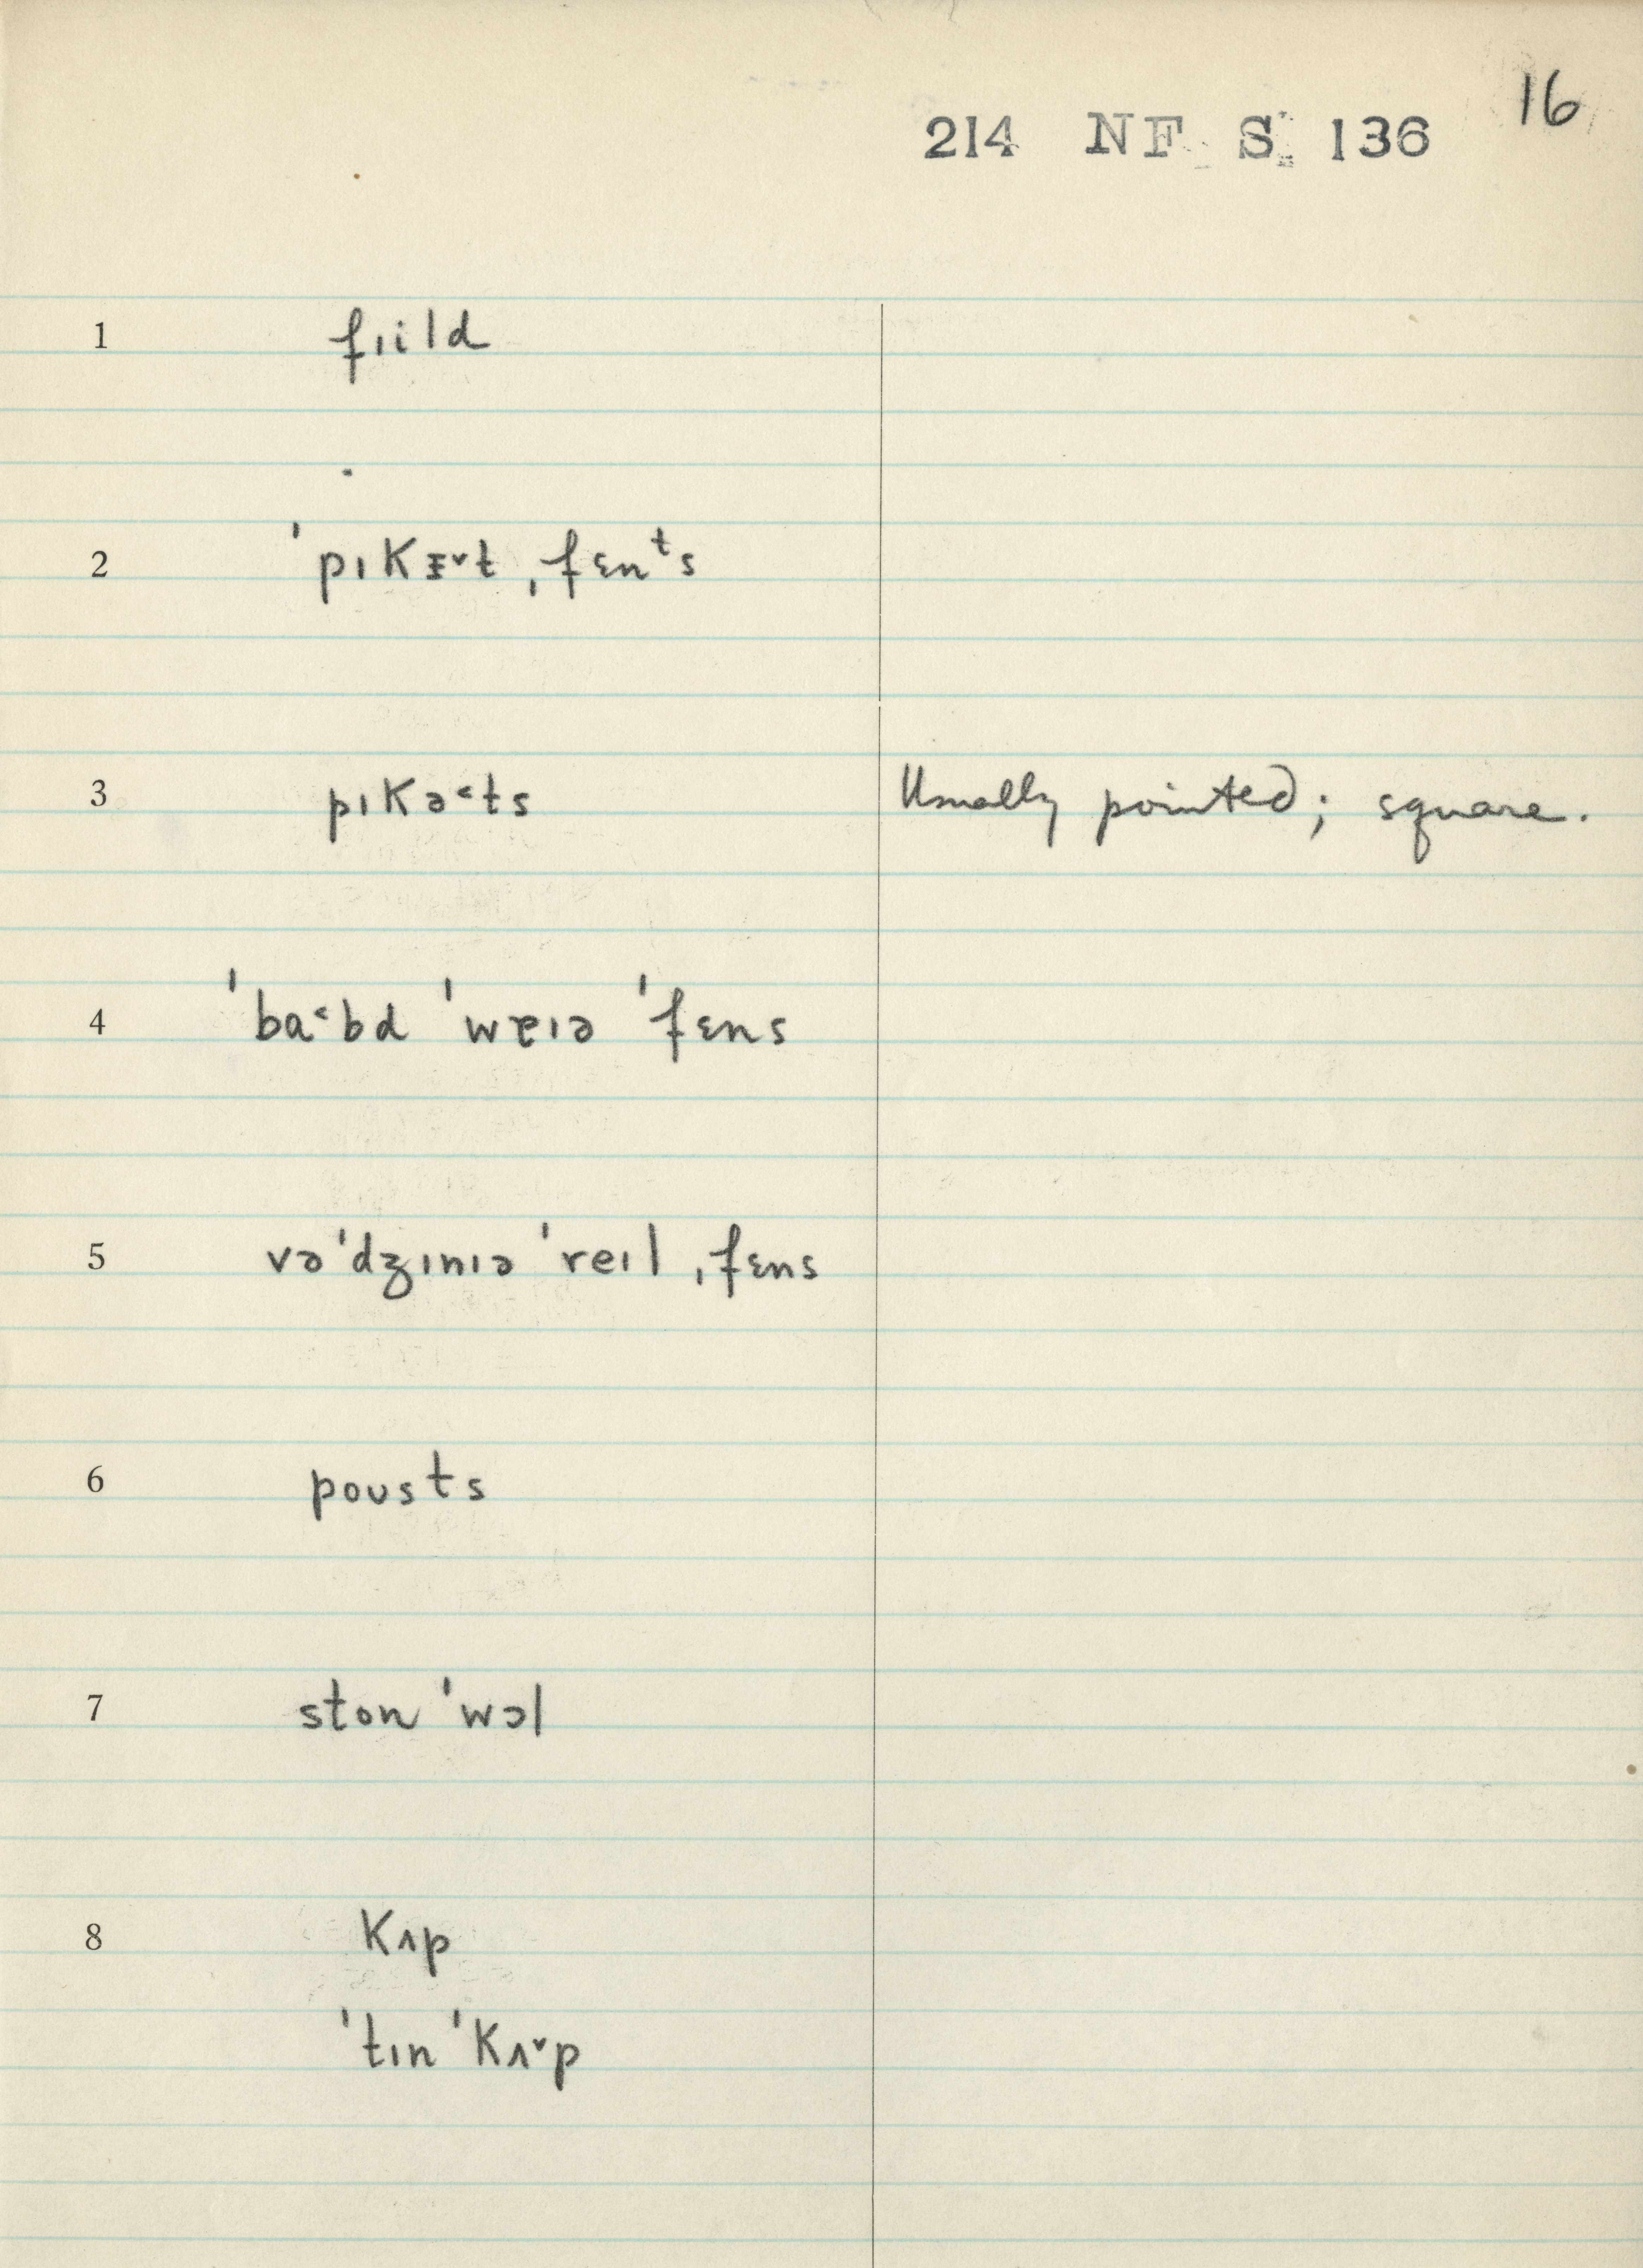 16
214 NF S 136
1 fɪild
2 ˈpɪkɪ̵˅t ˌfɛnᵗs
3 pɪkə˂ts Usually pointed; square.
4 ˈba˂bd ˈwɐɪə ˈfɛns
5 vəˈdʒɪnɪə ˈreɪl ˌfɛns
6 poʊsts
7 ston ˈwɔl
8 kʌp
ˈtɪn ˈkʌ˅p